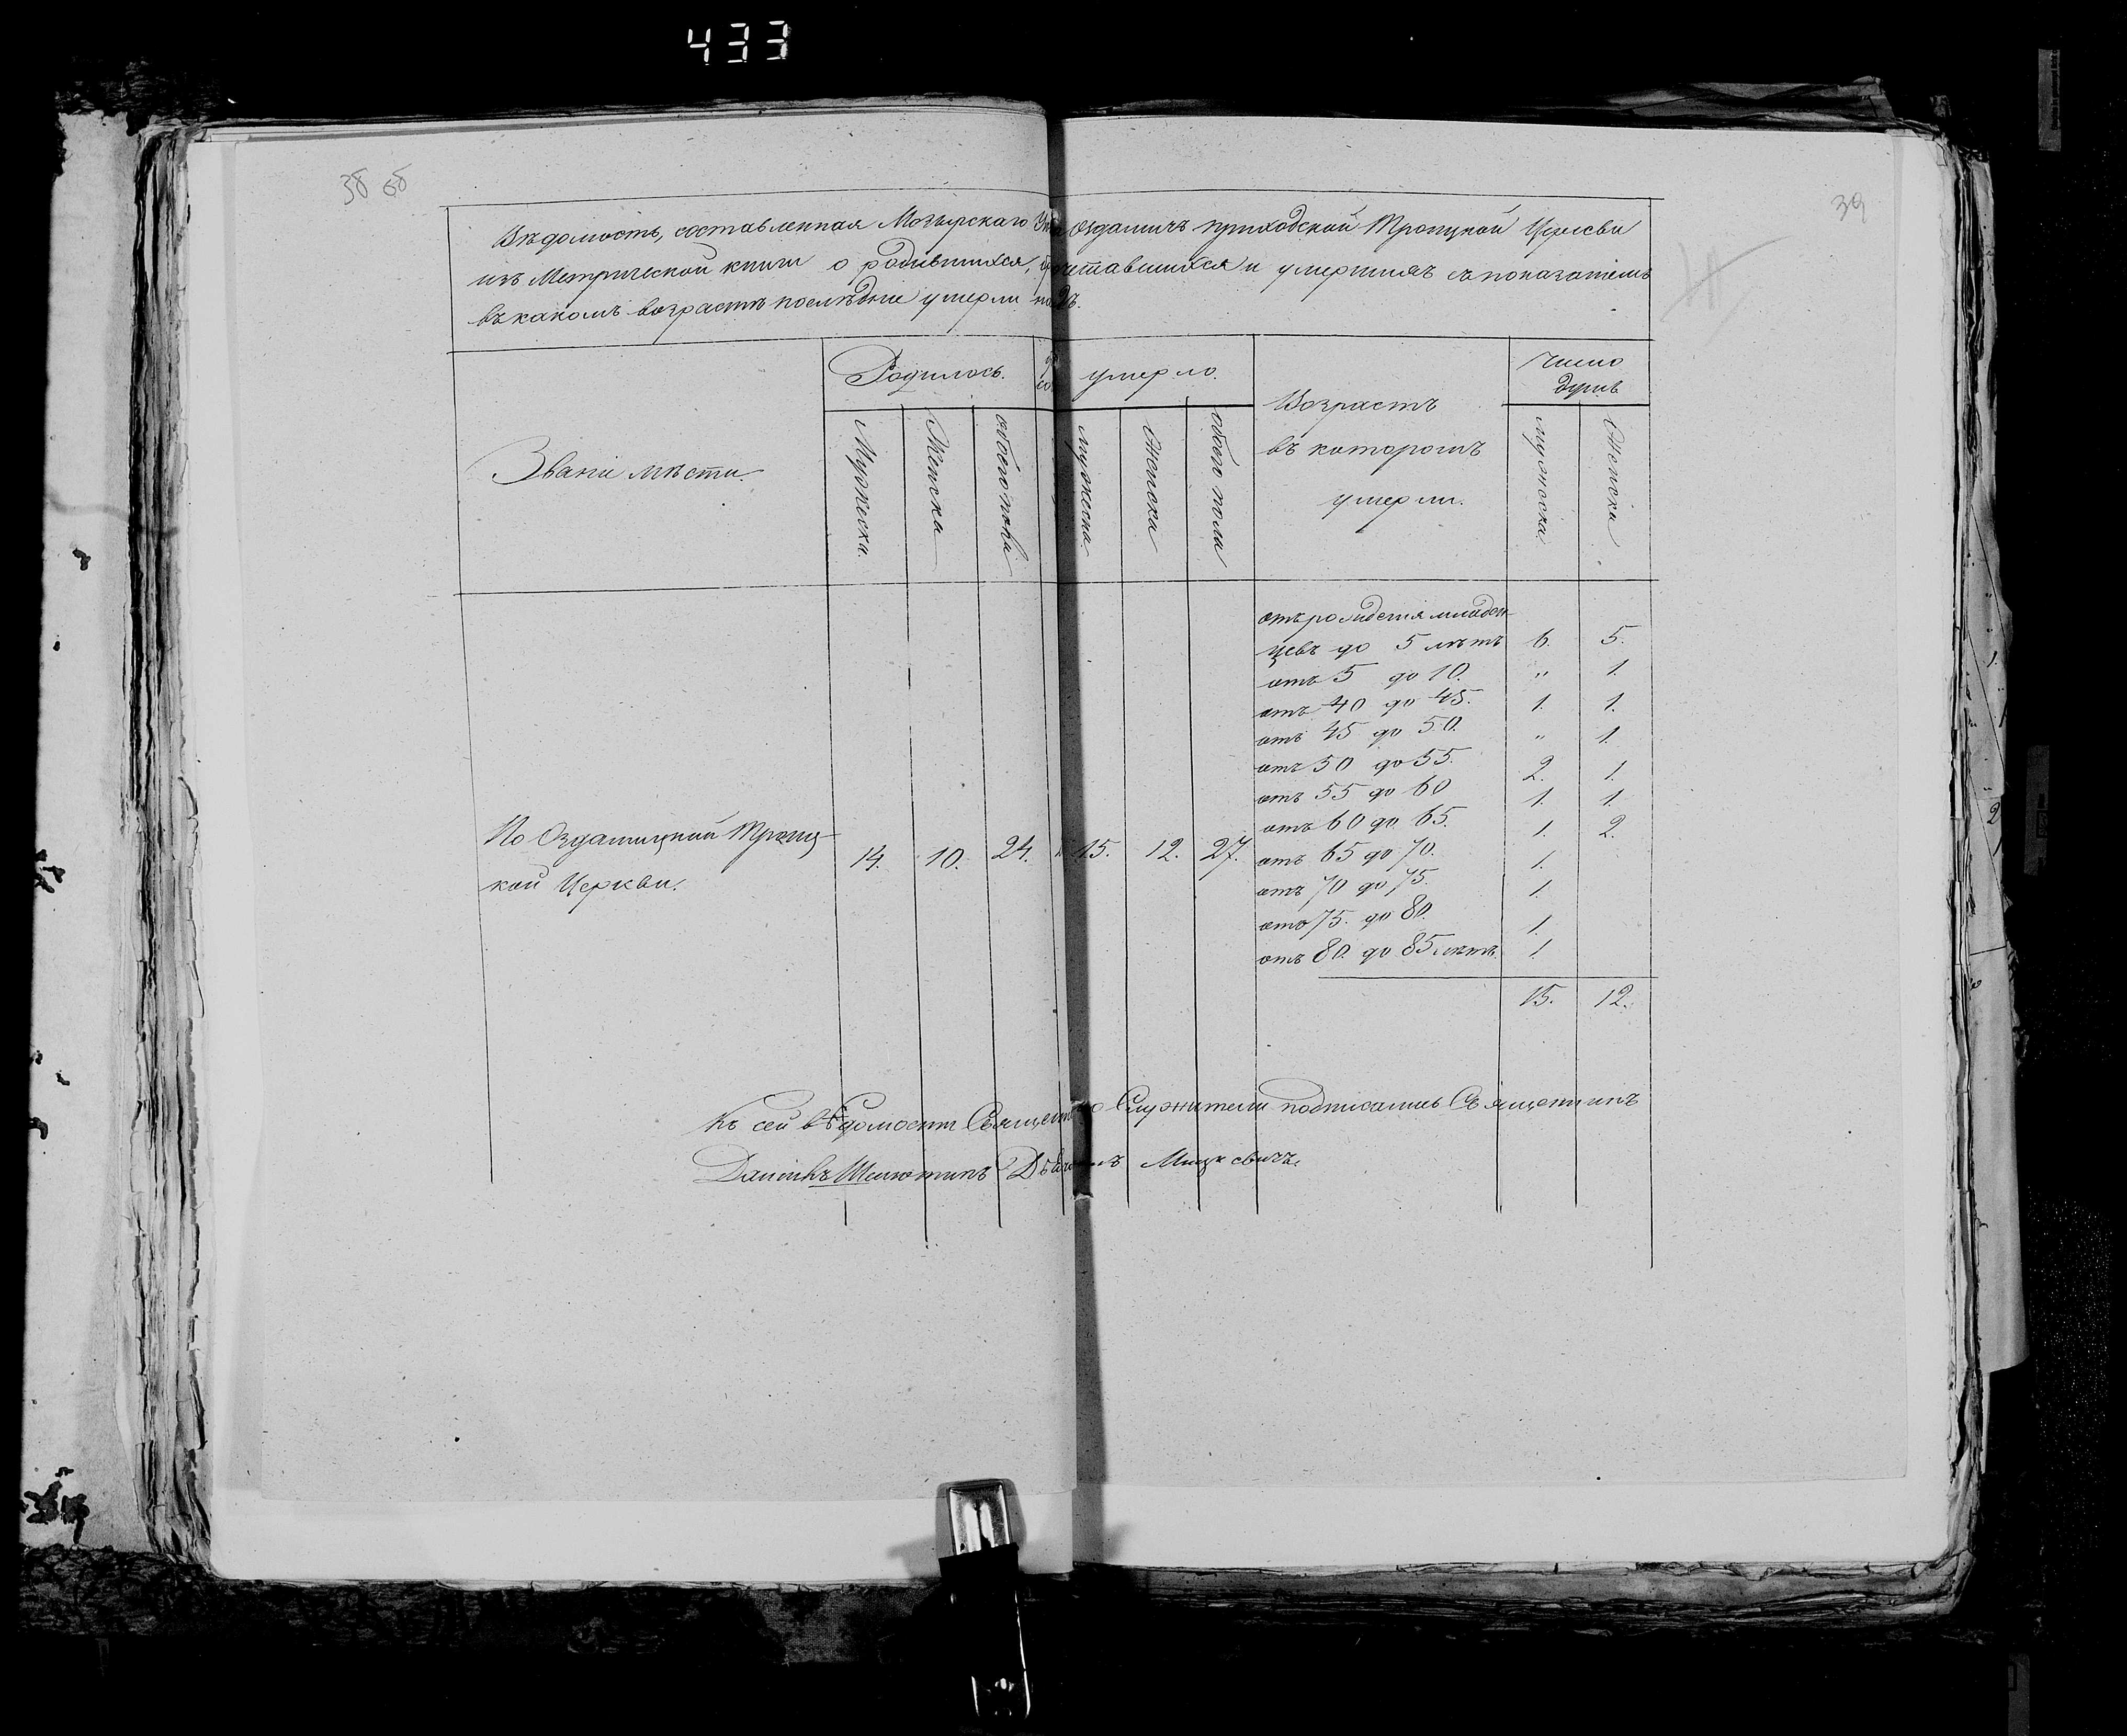 433
38 об
39
Вѣдомость, составленная Мозырскаго Оздамичъ приходской Троицкой Церкви
изъ Метрической книги о родившихся, бр четавшихся и умершихъ съ показателемъ
въ какомъ возрастѣ послѣднiе умерли
Званiе мѣсти.
Родилось.
умерло.
Возрастъ
въ которомъ
умерли.
Число
душъ
Мужеска.
Женска
обоего пола
мужеска
Женска
обоего пола
мужеска.
Женска.
отъ рожденiя младен
цевъ до 5 лѣтъ 6. 5.
отъ 5 до 10. " 1.
отъ 40 до 45. 1. 1.
отъ 45 до 50. " 1.
отъ 50 до 55. 2. 1.
отъ 55 до 60 1. 1.
отъ 60 до 65. 1. 2.
отъ 65 до 70. 1.
отъ 70 до 75. 1.
отъ 75. до 80. 1.
отъ 80. до 85 лѣтъ. 1.
По Оздамицкой Троиц
кой Церкви. 14. 10. 24. 15. 12. 27.
15. 12.
Къ сей вѣдомости Священно Служители подписались Священникъ
Данiилъ Мицкевичъ.